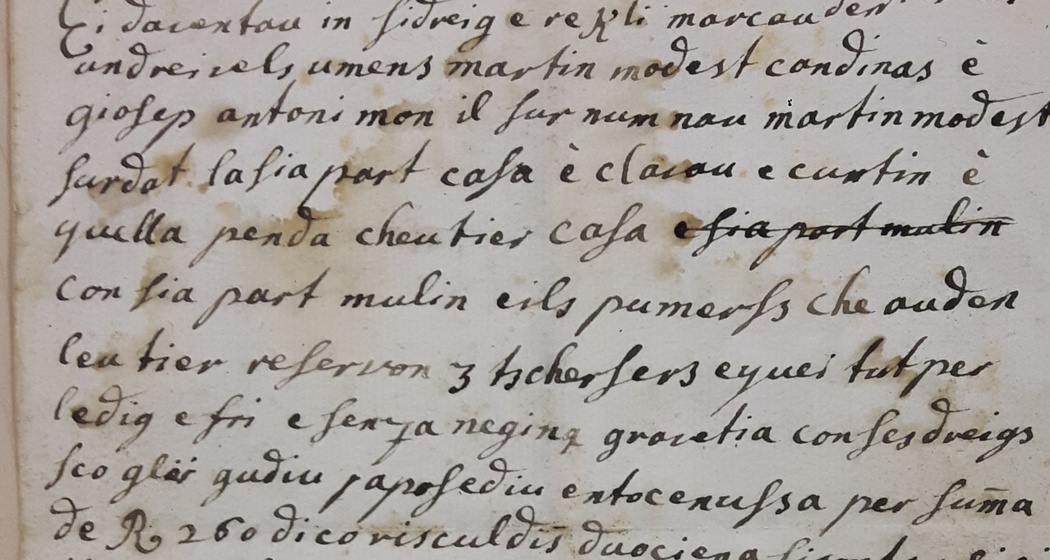 Ei daventau in sidreig e repli marcau den
undreivels umens martin modest condinas è
giosep antoni mon il sur num nau martin modest
surdat la sia part casa è clavau e curtin è
quella penda cheu tier casa e sia part mulin
con sia part mulin eils pumerss che auden
leu tier reservon 3 tschersers e quei tut per
ledig e fri e senza negina gravetia con ses dreigs
sco glei gudiu japosediu entocenussa per suma
de R 260 dico risculdis duociena